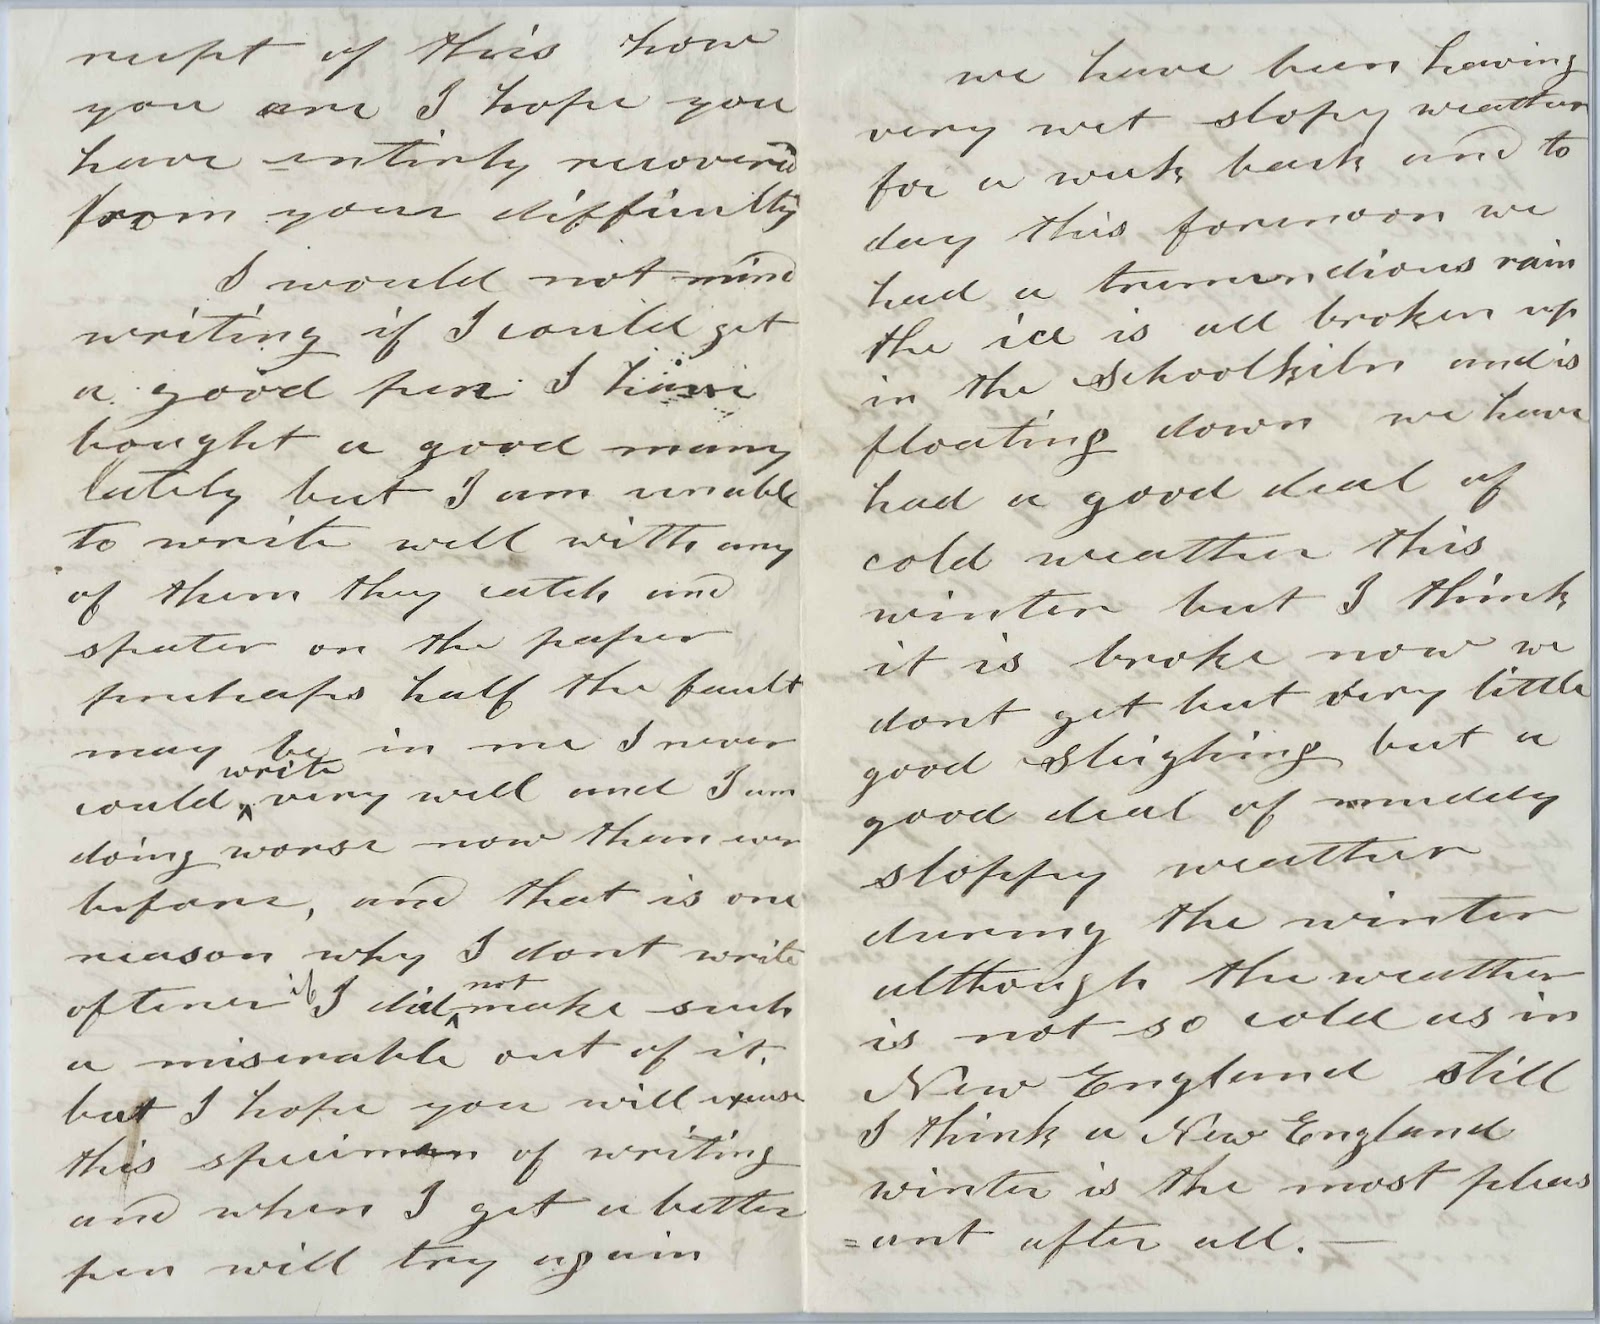 recipt of this how
you are I hope you
have entirly recovered
from your difficulty
I would not mind
writing if I could get
a good pen I have
bought a good many
lately but I am unable
to write well with any
of them they catch and
spater on the paper
prehaps half the fault
may be in me I never
could write very well and I am
doing worse now than ever
before, and that is one
reason why I dont write
oftener if I did not make such
a miserable out of it.
but I hope you will excuse
this speciman of writing
and when I get a better
pen will try again
we have been having
very wet slopy weather
for a week back and to
day this forenoon we
had a tremendious rain
the ice is all broken up
in the Schoolkiln and is
floating down we have
had a good deal of
cold weather this
winter but I think
it is broke now we
dont get but very little
good Sleighing but a
good deal of muddy
sloppy weather
during the winter
although the weather
is not so cold as in
New England still
I think a New England
winter is the most pleas
=ant after all. —